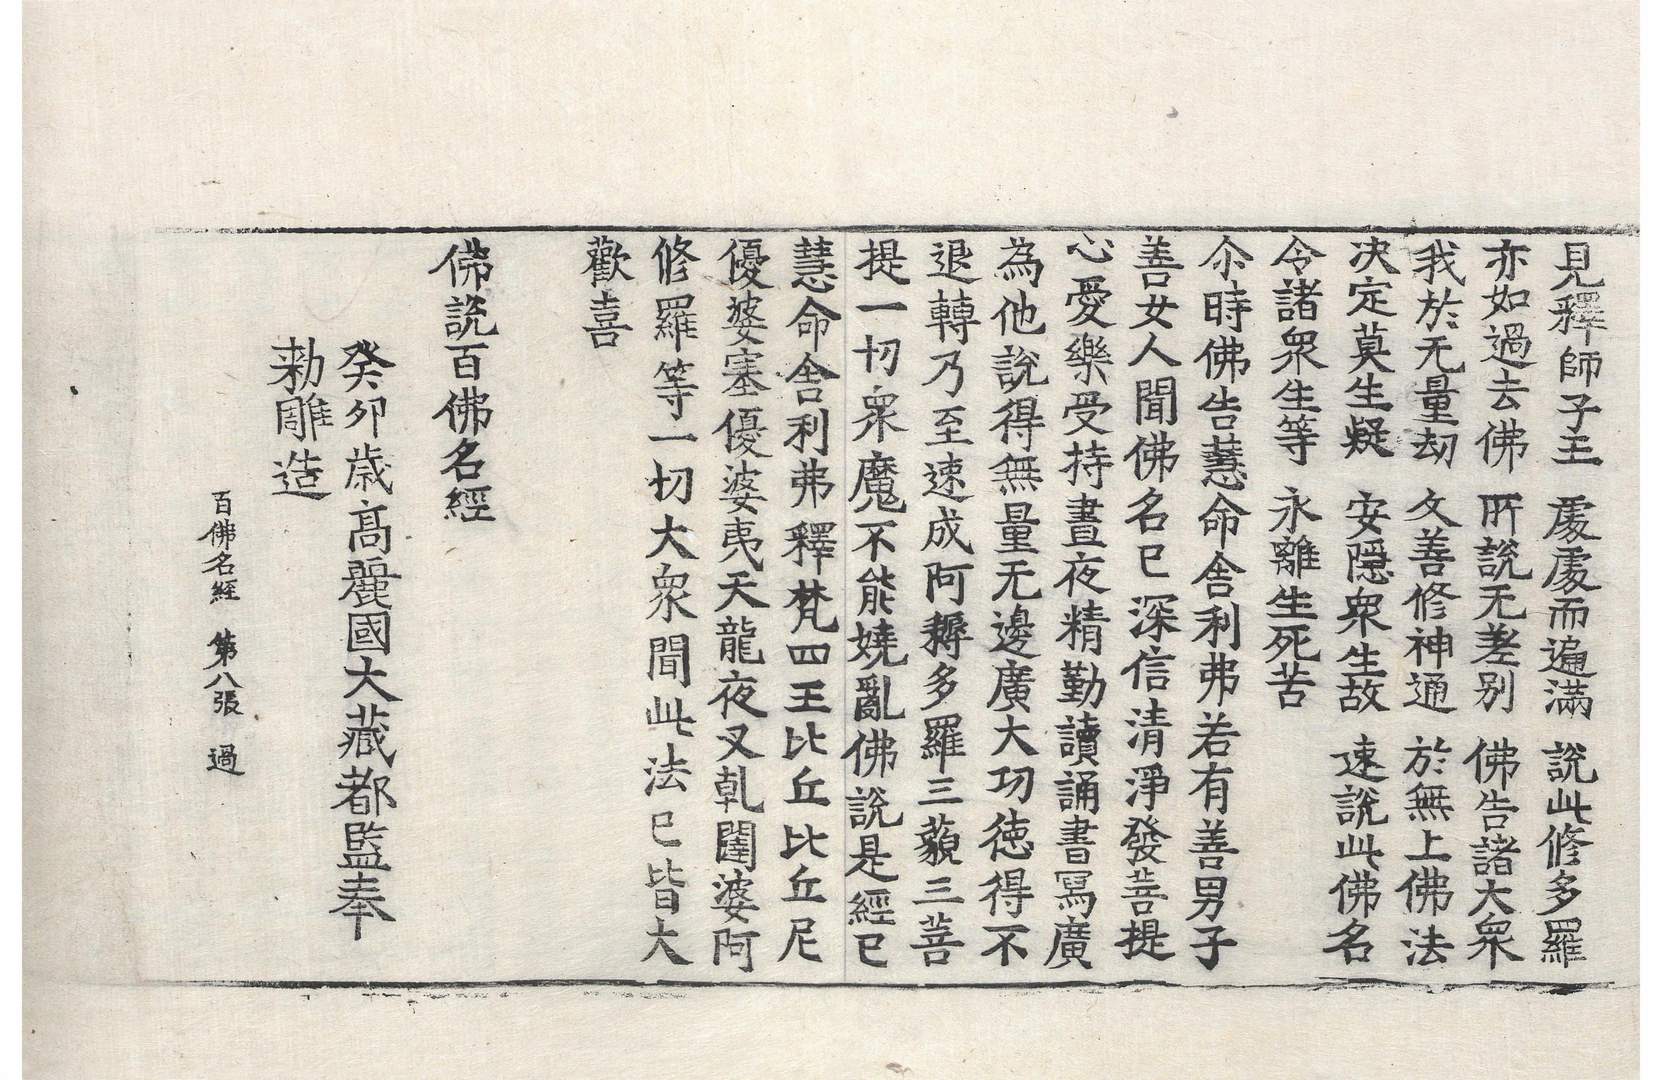 見釋師子王　處處而遍滿　說此修多羅
亦如過去佛　所說无差別　佛告諸大衆
我於无量劫　文善修神通　於無上佛法
决定莫生疑　安隱衆生故　速說此佛名
令諸衆生等　永離生死苦
尒時佛告慧命舍利弗若有善男子
善女人聞佛名已深信清淨發菩提
心愛樂受持晝夜精勤讀誦書寫廣
為他說得無量无邊廣大功徳得不
退轉乃至速成阿耨多羅三藐三菩
提一切衆魔不能嬈亂佛說是經已
慧命舍利弗釋梵四王比丘比丘尼
優婆塞優婆夷天龍夜叉乹闥婆阿
修羅等一切大衆聞此法已皆大
歡喜
佛說百佛名經
癸卯歲高麗國大藏都監奉
勑雕造
百佛名經　第八張　過